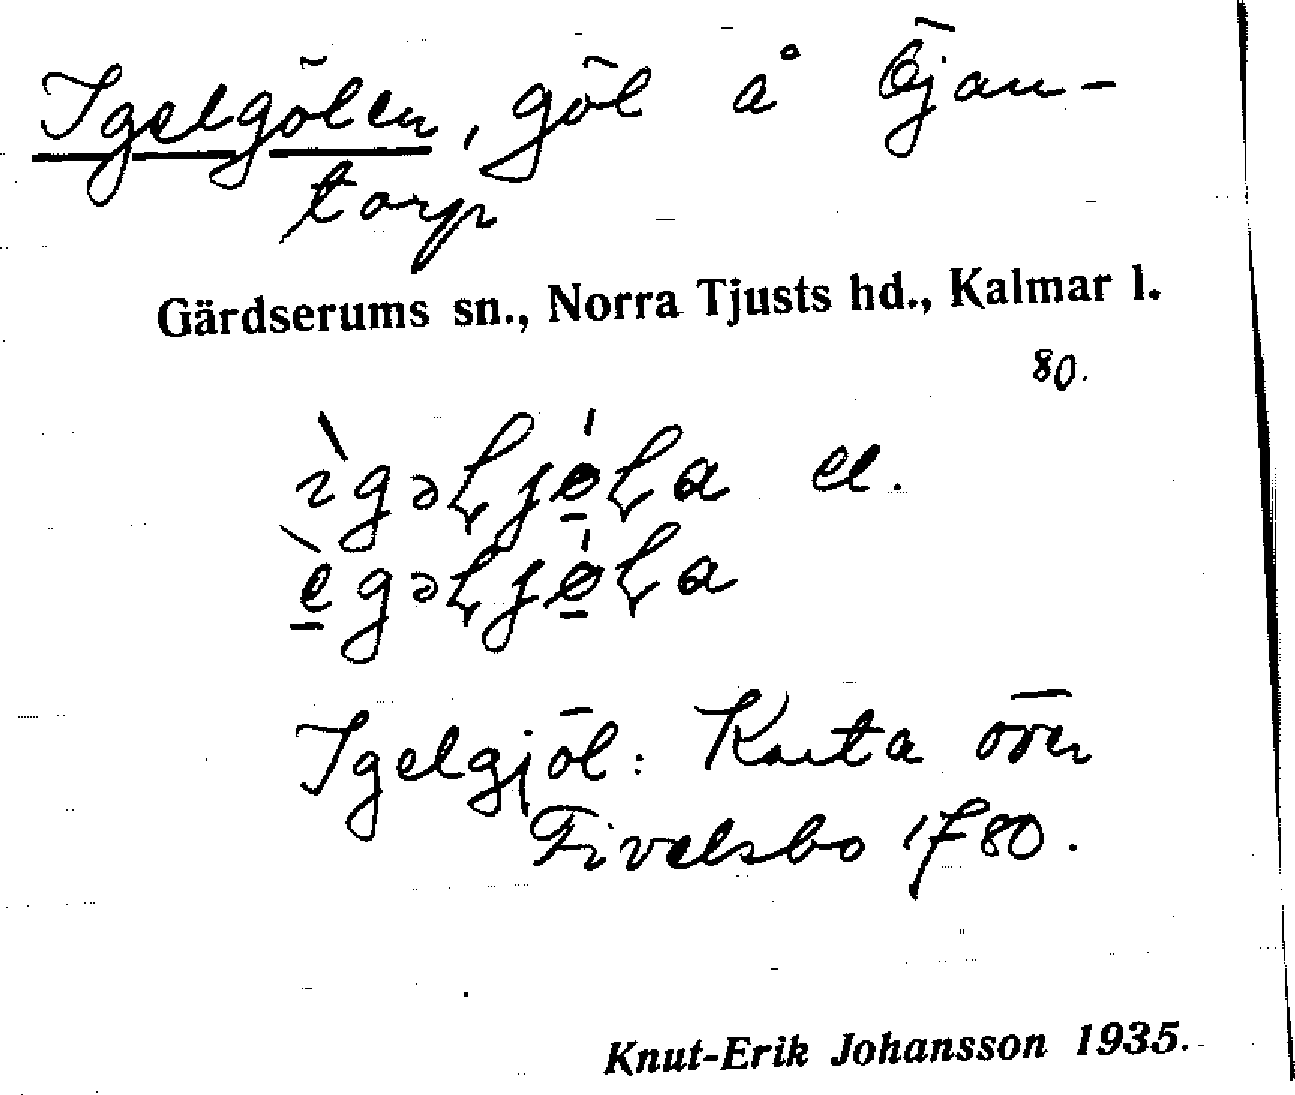 Igelgölen, göl å Öjan-
torp
Gärdserums sn., Norra Tjusts hd., Kalmar l.
80.
ìgəljö́la el.
ègəljö́la
Igelgjöl: Karta över
Fivelsbo 1780.
Knut-Erik Johansson 1935.